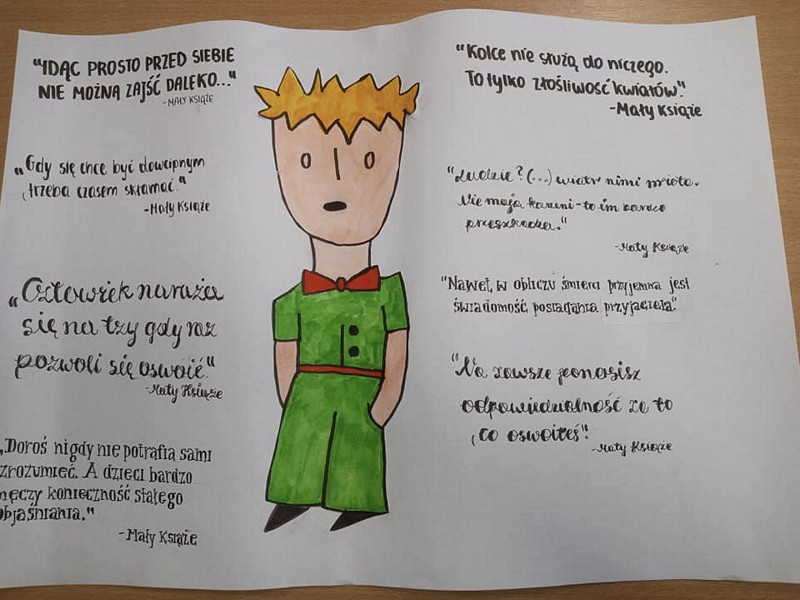 "IDĄC PROSTO PRZED SIEBIE
NIE MOŻNA ZAJŚĆ DALEKO..."
- MAŁY KSIĄŻE
„Gdy się chce być dowcipnym
trzeba czasem skłamać."
- Mały Książe
„Człowiek naraża
się na łzy gdy raz
pozwoli się oswoić."
- Mały Książe
„Doroś nigdy nie potrafią sami
zrozumieć. A dzieci bardzo
męczy konieczność stałego
objaśniania."
- Mały Książe
"Kolce nie służą do niczego.
To tylko złośliwość kwiatów."
- Mały Książe
"Ludzie? (...) wiatr nimi miota.
Nie mają korzeni - to im bardzo
przeszkadza."
- Mały Książe
"Nawet, w obliczu śmierci przyjemna jest
świadomość posiadania przyjaciela".
"Na zawsze ponosisz
odpowiedzialność za to
co oswoiłeś".
- Mały Książe